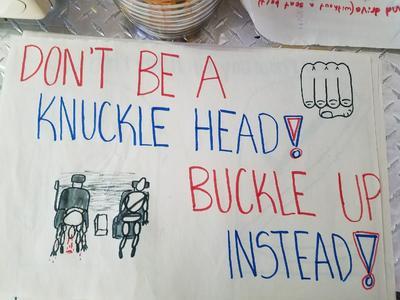 and drive (without a seat belt)
DON'T BE A
KNUCKLE HEAD!
BUCKLE UP
INSTEAD!